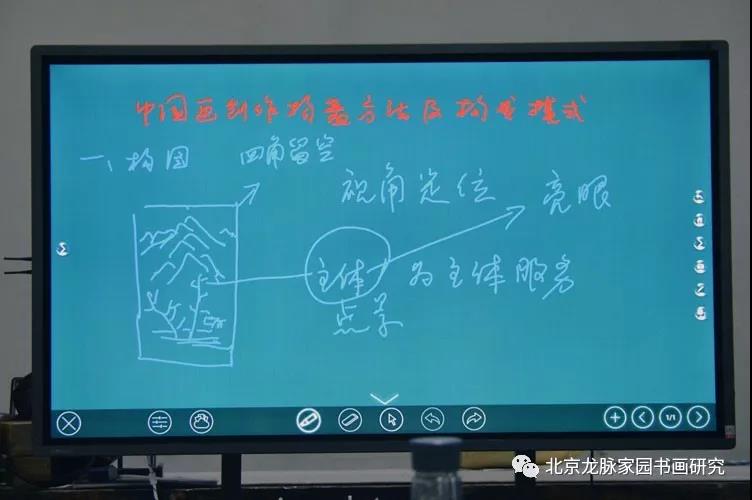 中国画创作构图方法及构成模式
一、构图 四角留空
视角定位 亮眼
主体 为主体服务
点景
1/1
北京龙脉家园书画研究